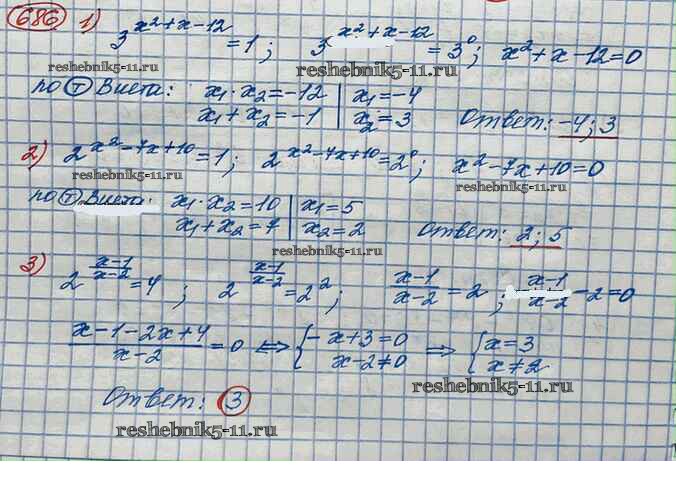 686 1) 3^{x²+x-12} = 1; 3^{x²+x-12} = 3⁰; x²+x-12=0
reshebnik5-11.ru
reshebnik5-11.ru
reshebnik5-11.ru
по т Виета: x₁·x₂=-12 | x₁=-4
x₁+x₂=-1 | x₂=3
Ответ: -4; 3
reshebnik5-11.ru
2) 2^{x²-7x+10}=1; 2^{x²-7x+10}=2⁰; x²-7x+10=0
reshebnik5-11.ru
reshebnik5-11.ru
по т Виета: x₁·x₂=10 | x₁=5
x₁+x₂=7 | x₂=2
Ответ: 2; 5
reshebnik5-11.ru
3) 2^{\frac{x-1}{x-2}}=4; 2^{\frac{x-1}{x-2}}=2²; \frac{x-1}{x-2}=2; \frac{x-1}{x-2}-2=0
\frac{x-1-2x+4}{x-2}=0 ⇔ { -x+3=0 ⇒ { x=3
x-2≠0 x≠2
reshebnik5-11.ru
Ответ: 3
reshebnik5-11.ru